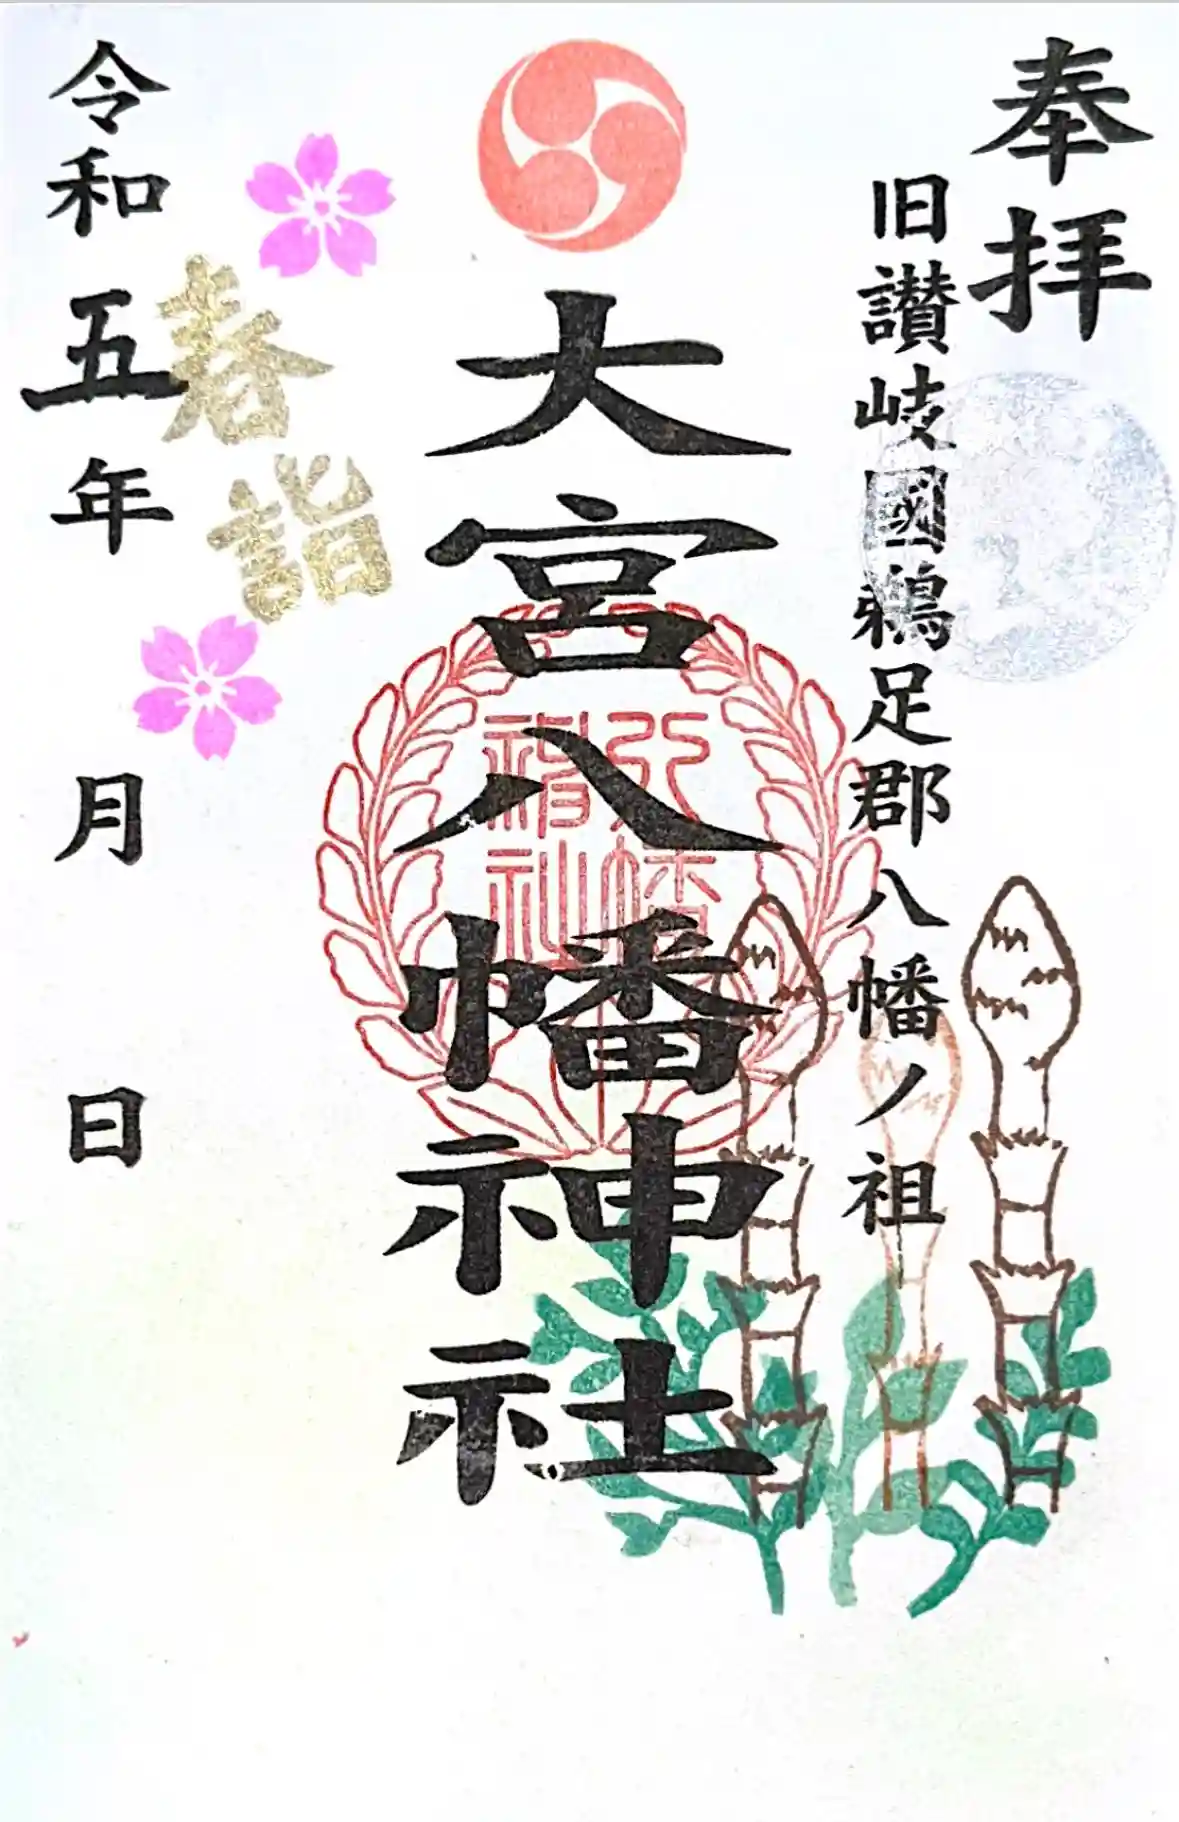 奉拝
旧讃岐國鵜足郡八幡ノ祖
大宮八幡神社
八幡神社
春詣
令和五年 月 日